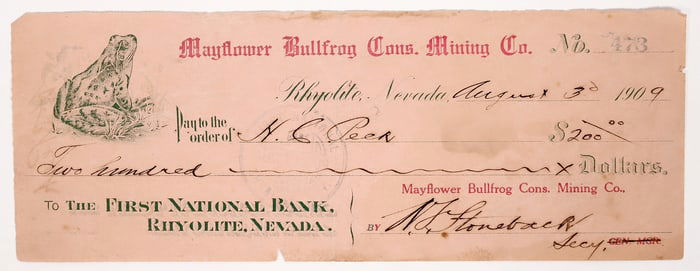 Mayflower Bullfrog Cons. Mining Co. No. 473
Rhyolite, Nevada, August 3d 1909
Pay to the order of H. C. Peck $200.00
Two hundred x Dollars.
Mayflower Bullfrog Cons. Mining Co.,
To The First National Bank,
Rhyolite, Nevada.
By Stoneback
Secy. GEN. MGR.